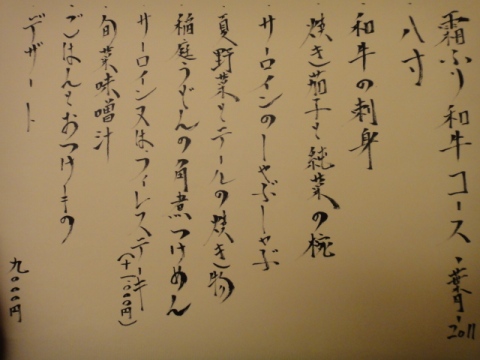 霜ふり和牛コース 葉月 2011
・八寸
・和牛の刺身
・焼き茄子と純菜の椀
・サーロインのしゃぶしゃぶ
・夏野菜とテールの焼き物
・稲庭うどんの角煮つけめん
・サーロイン又はフィレステーキ
(+1,000円)
・旬菜味噌汁
・ごはんとおつけもの
・デザート
九〇〇〇円